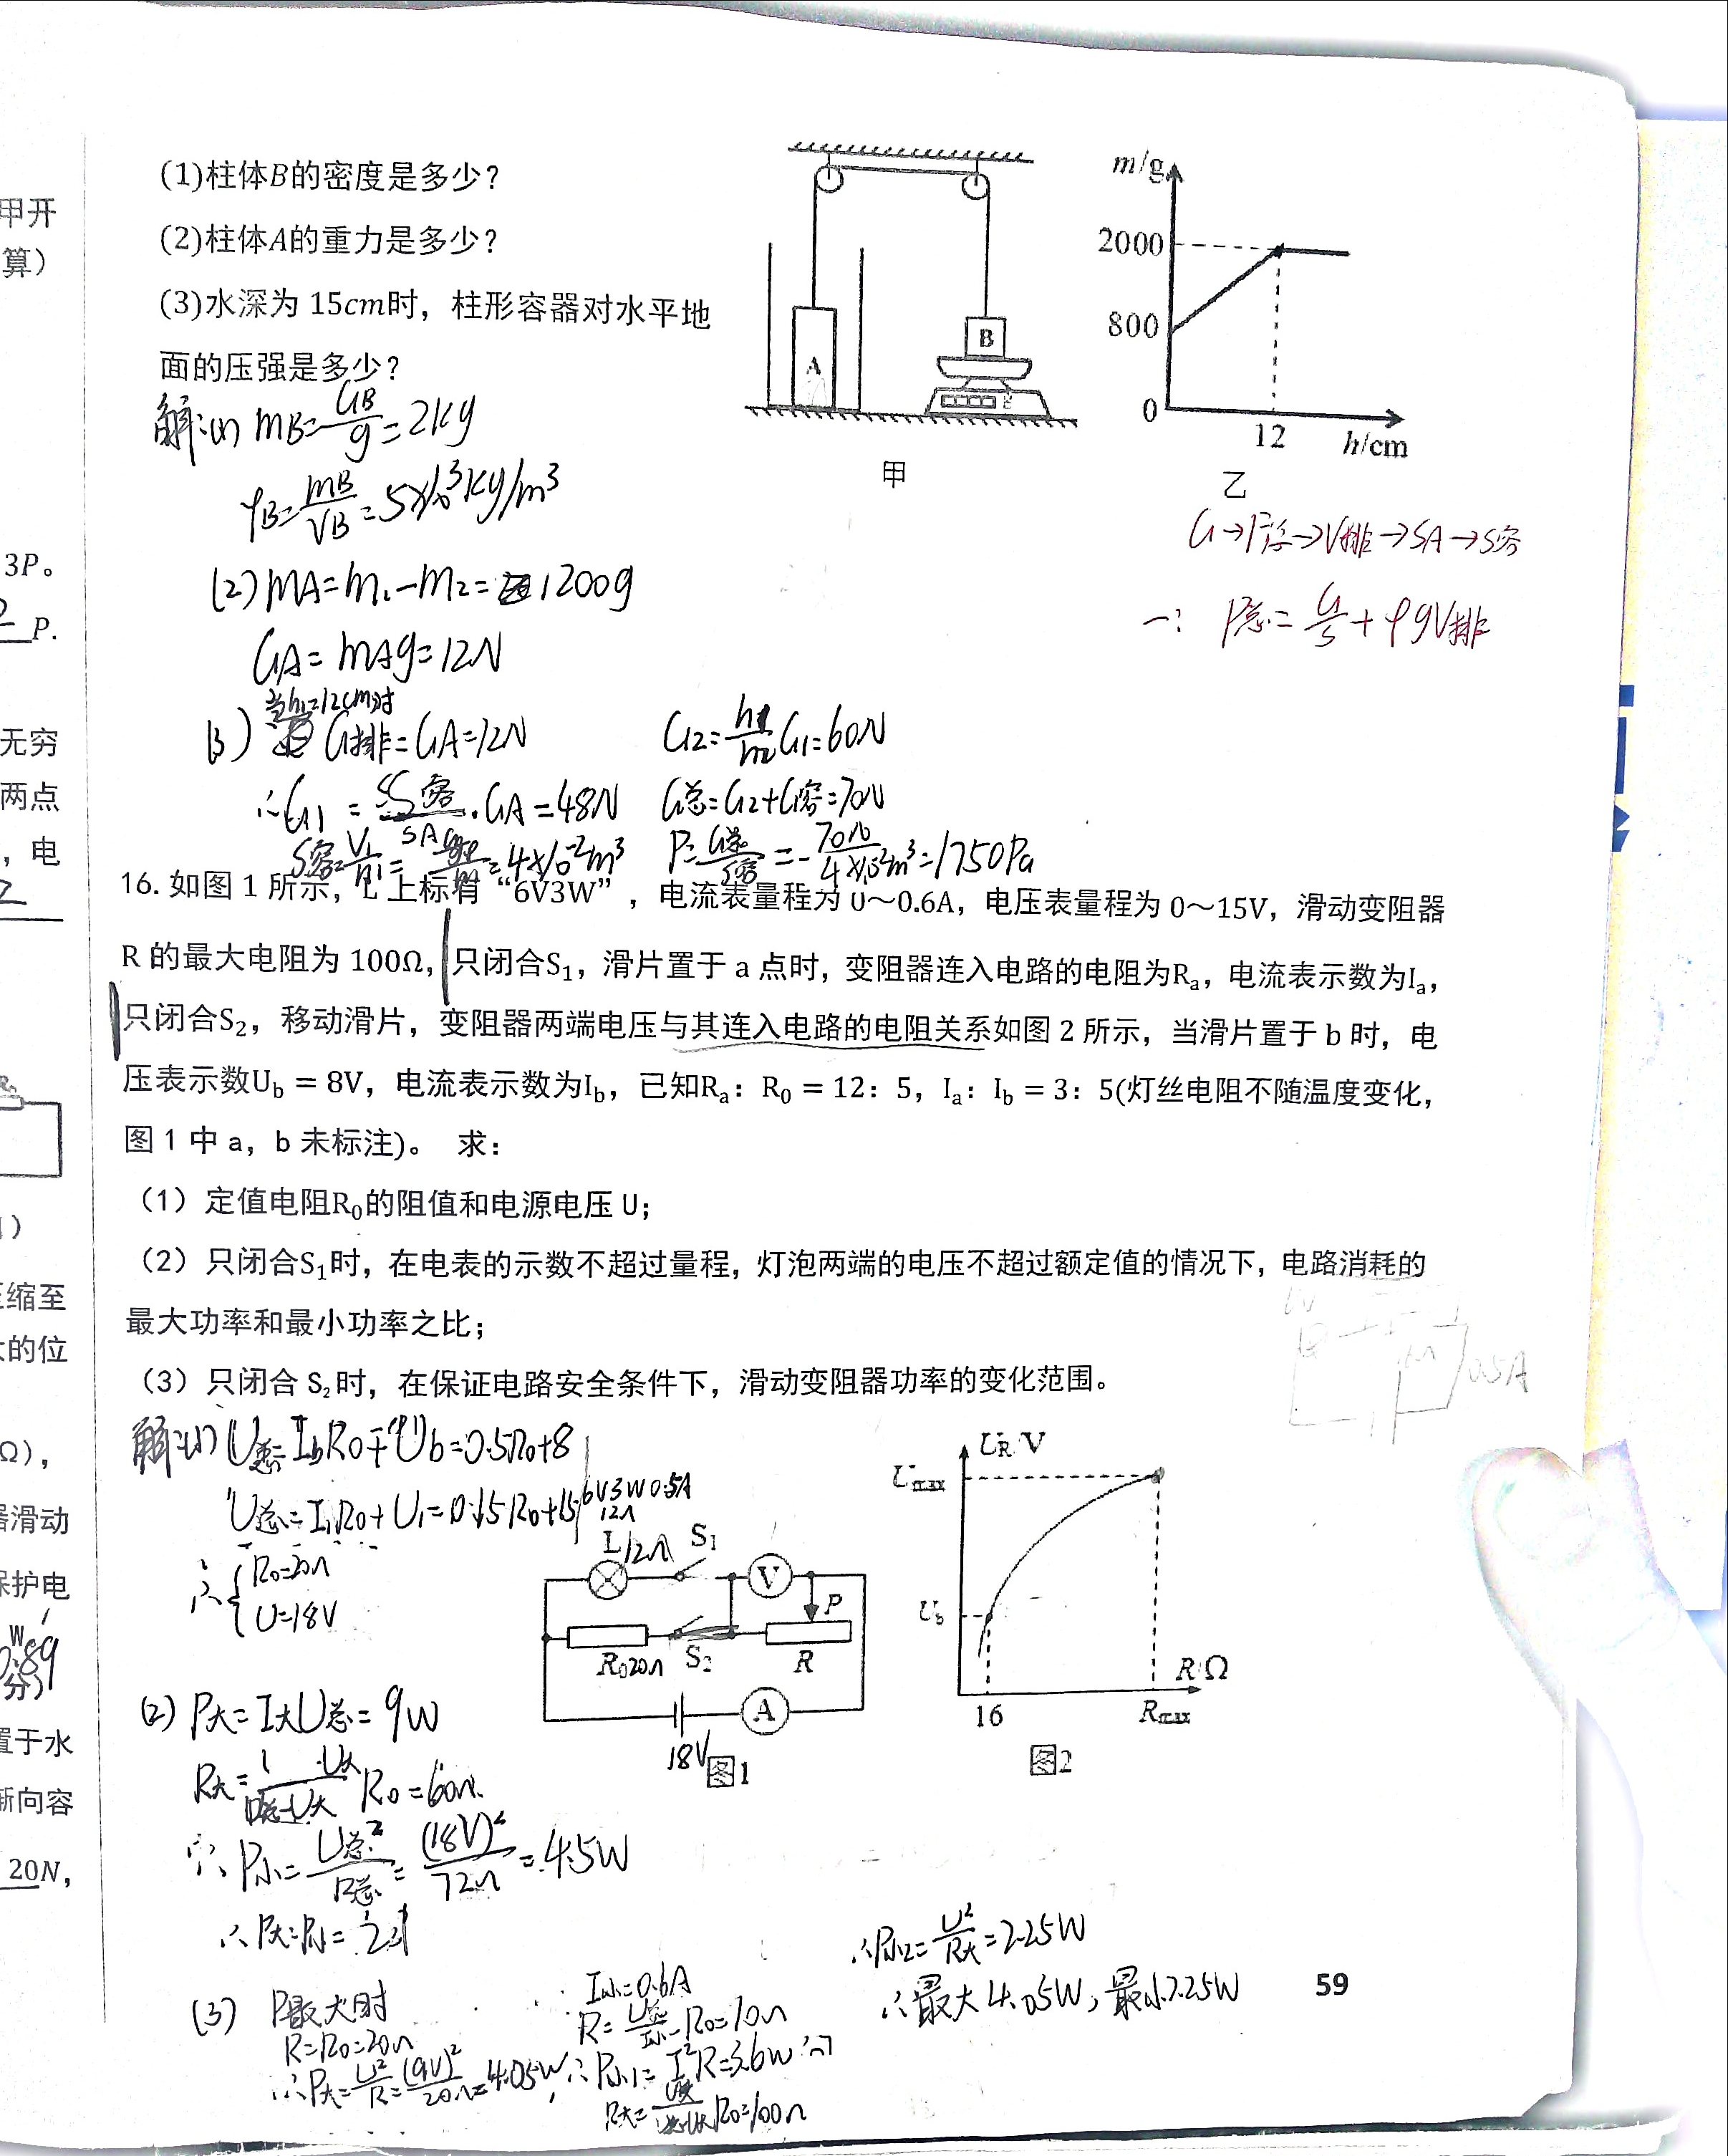 甲开
算）
3P。
P.
无穷
两点
，电
缩至
的位
Ω），
器滑动
保护电
分）
置于水
渐向容
20N，
(1)柱体B的密度是多少？
(2)柱体A的重力是多少？
(3)水深为 15cm时，柱形容器对水平地
面的压强是多少？
A
B
甲
m/g
2000
800
0
12
h/cm
乙
解:(1) mB=GB/g=2kg
ρB=mB/VB=5×10³kg/m³
(2) mA=m1-m2=1200g
GA=mAg=12N
(3) 当h1=12cm时
G排=GA=12N
∴G1=S容/SA·GA=48N
G总=G2+G容=70N
G→F浮→V排→SA→S容
P总=G/S+ρgV排
16. 如图 1 所示，L 上标有 “6V3W”，电流表量程为 0～0.6A，电压表量程为 0～15V，滑动变阻器
R 的最大电阻为 100Ω，只闭合S₁，滑片置于 a 点时，变阻器连入电路的电阻为Rₐ，电流表示数为Iₐ，
只闭合S₂，移动滑片，变阻器两端电压与其连入电路的电阻关系如图 2 所示，当滑片置于 b 时，电
压表示数U_b = 8V，电流表示数为I_b，已知Rₐ：R₀ = 12：5，Iₐ：I_b = 3：5(灯丝电阻不随温度变化，
图 1 中 a，b 未标注)。 求：
（1）定值电阻R₀的阻值和电源电压 U；
（2）只闭合S₁时，在电表的示数不超过量程，灯泡两端的电压不超过额定值的情况下，电路消耗的
最大功率和最小功率之比；
（3）只闭合 S₂ 时，在保证电路安全条件下，滑动变阻器功率的变化范围。
0.5A
解:(1) U总=IbR0+Ub=0.5R0+8
U总=I1R0+U1=0.15R0+15
6V3W0.5A
12Ω
∴{R0=20Ω
U=18V
L 12Ω
S₁
V
P
R₀20Ω
S₂
R
A
18V
图1
U_R/V
U_max
U_b
16
R_max
R/Ω
图2
(2) P大=I大U总=9W
R0=60Ω
∴P小=U总²/R总=(18V)²/72Ω=4.5W
∴P大:P小=2:1
(3) P最大时
R=R0=20Ω
∴P大=U²/R=(9V)²/20Ω=4.05W
I小=0.6A
R=U总/I小-R0=10Ω
∴P小1=I²R=3.6W
R0=100Ω
∴P小2=U²/R大=2.25W
∴最大4.05W，最小2.25W
59